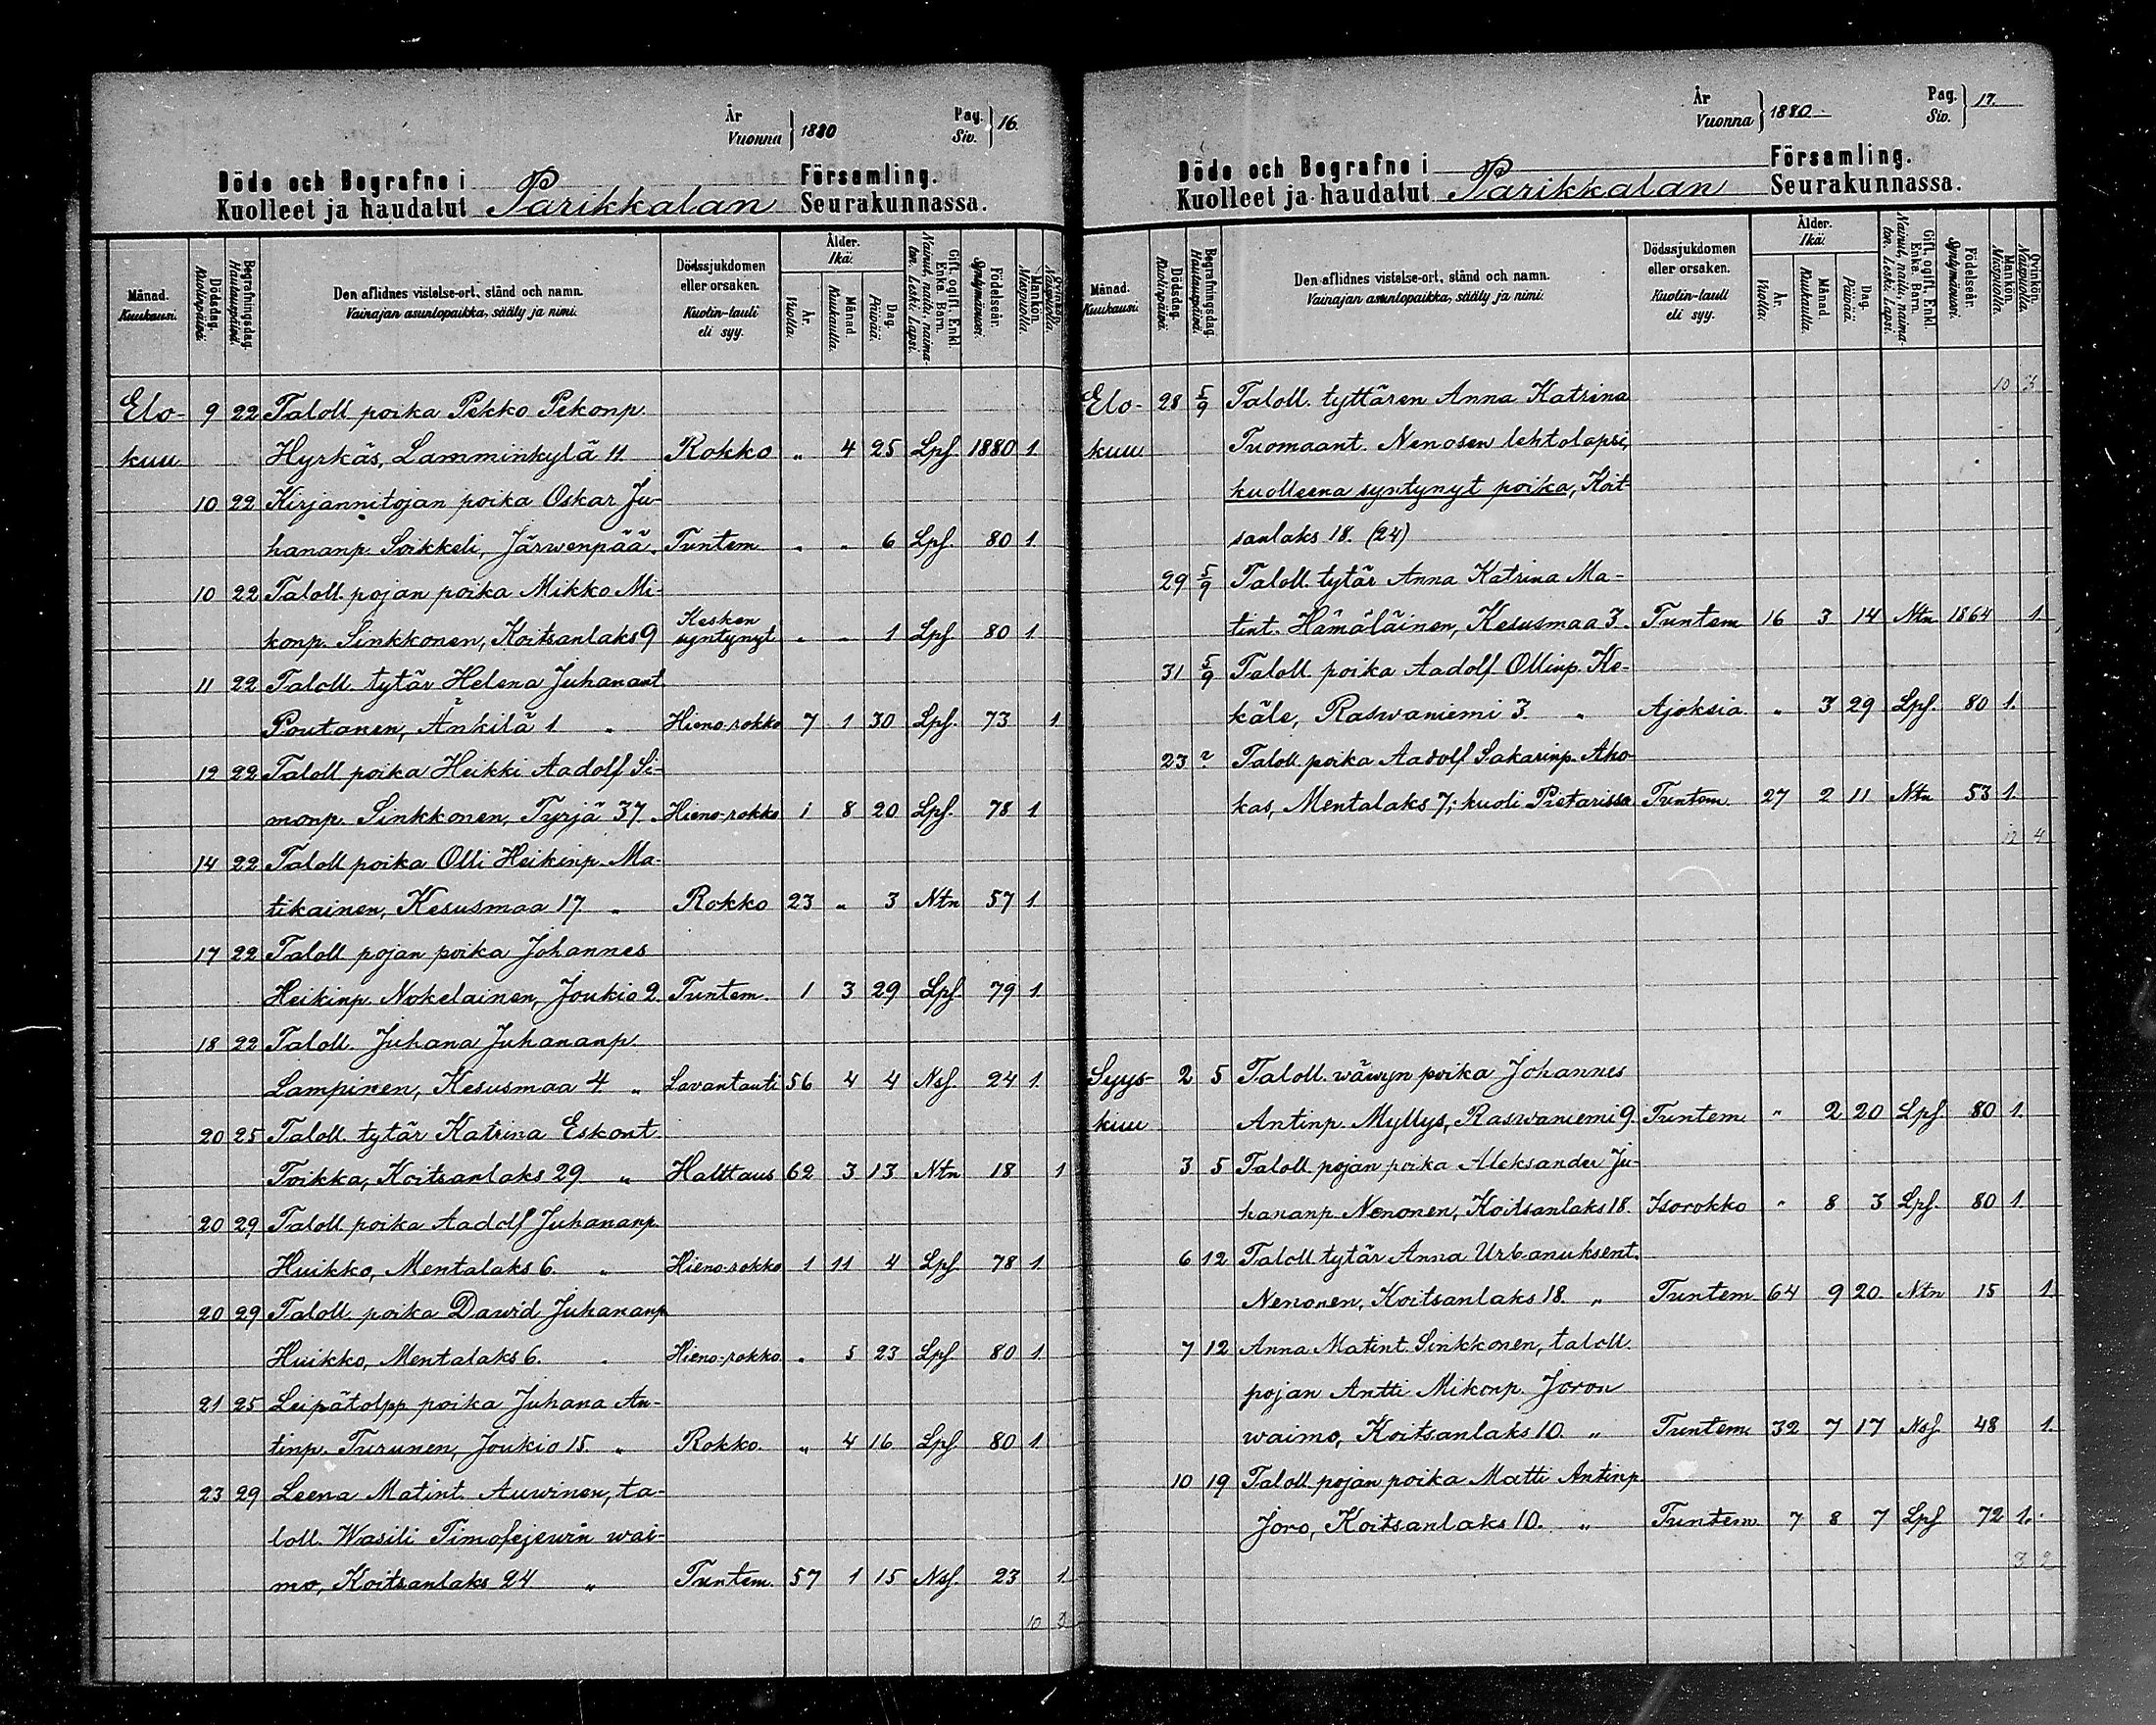 År
Vuonna } 1880
Pag.
Siv. } 16.
Döde och Begrafne i Församling.
Kuolleet ja haudatut Parikkalan Seurakunnassa.
Månad. Kuukausi.
Dödsdag. Kuolinpäivä.
Begrafningsdag. Hautauspäivä.
Den aflidnes vistelse-ort, stånd och namn.
Vainajan asuntopaikka, sääty ja nimi.
Dödssjukdomen eller orsaken.
Kuolin-lauli eli syy.
Ålder. Ikä.
År. Vuotta.
Månad. Kuukautta.
Dag. Päivää.
Gift, ogift, Enkl. Enka. Barn.
Nainut, naitu, naimaton. Leski. Lapsi.
Födelseår. Syntymävuosi.
Mankön. Miespuolia.
Qvinkön. Naispuolia.
Elo- 9 22 Taloll poika Pekko Pekonp.
kuu Hyrkäs, Lamminkylä 11. Rokko „ 4 25 Lps. 1880 1.
10 22 Kirjannitojan poika Oskar Ju-
hananp. Soikkeli, Järwenpää. Tuntem „ „ 6 Lps. 80 1.
10 22 Taloll. pojan poika Mikko Mi-
konp. Sinkkonen, Koitsanlaks 9 Kesken syntynyt „ „ 1 Lps. 80 1.
11 22 Taloll. tytär Helena Juhanant.
Poutanen, Änkilä 1 „ Hieno-rokko 7 1 30 Lps. 73 1
12 22 Taloll poika Heikki Aadolf Si-
monp. Sinkkonen, Tyrjä 37. Hieno-rokko 1 8 20 Lps. 78 1
14 22 Taloll poika Olli Heikinp. Ma-
tikainen, Kesusmaa 17. „ Rokko 23 „ 3 Ntn 57 1.
17 22 Taloll pojan poika Johannes
Heikinp. Nokelainen, Joukio 2. Tuntem. 1 3 29 Lps. 79 1.
18 22 Taloll. Juhana Juhananp.
Lampinen, Kesusmaa 4 „ Lavantauti 56 4 4 Nsf. 24 1.
20 25 Taloll. tytär Katrina Eskont.
Toikka, Koitsanlaks 29 „ Halttaus 62 3 13 Ntn 18 1
20 29 Taloll poika Aadolf Juhananp.
Huikko, Mentalaks 6. „ Hieno-rokko 1 11 4 Lps. 78 1.
20 29 Taloll. poika Dawid Juhananp
Huikko, Mentalaks 6. „ Hieno-rokko. „ 5 23 Lps. 80 1.
21 25 Leipätolpp poika Juhana An-
tinp. Turunen, Joukio 15. „ Rokko. „ 4 16 Lps. 80 1.
23 29 Leena Matint. Auwinen, ta-
loll. Wasili Timofejewin wai-
mo, Koitsanlaks 24 „ Tuntem. 57 1 15 Nsf. 23 1.
10 3
År
Vuonna } 1880
Pag.
Siv. } 17.
Döde och Begrafne i Församling.
Kuolleet ja haudatut Parikkalan Seurakunnassa.
Månad. Kuukausi.
Dödsdag. Kuolinpäivä.
Begrafningsdag. Hautauspäivä.
Den aflidnes vistelse-ort, stånd och namn.
Vainajan asuntopaikka, sääty ja nimi.
Dödssjukdomen eller orsaken.
Kuolin-lauli eli syy.
Ålder. Ikä.
År. Vuotta.
Månad. Kuukautta.
Dag. Päivää.
Gift, ogift, Enkl. Enka. Barn.
Nainut, naitu, naimaton. Leski. Lapsi.
Födelseår. Syntymävuosi.
Mankön. Miespuolia.
Qvinkön. Naispuolia.
10 3
Elo- 28 5/9 Taloll. tyttären Anna Katrina
kuu Tuomaant. Nenosen lehtolapsi,
kuolleena syntynyt poika, Koit-
sanlaks 18. (24)
29 5/9 Taloll. tytär Anna Katrina Ma-
tint. Hämäläinen, Kesusmaa 3. Tuntem 16 3 14 Ntn 1864 1
31 5/9 Taloll. poika Aadolf Ollinp. Ke-
käle, Raswaniemi 3. „ Ajoksia. „ 3 29 Lps. 80 1.
23 ? Taloll poika Aadolf Sakarinp. Aho-
kas, Mentalaks 7; kuoli Pietarissa Tuntem. 27 2 11 Ntn 53 1.
12 4
Syys- 2 5 Taloll. wäwyn poika Johannes
kuu Antinp. Myllys, Raswaniemi 9. Tuntem „ 2 20 Lps. 80 1.
3 5 Taloll. pojan poika Aleksander Ju-
hananp Nenonen, Koitsanlaks 18. Isorokko „ 8 3 Lps. 80 1.
6 12 Taloll tytär Anna Urbanuksent.
Nenonen, Koitsanlaks 18. „ Tuntem 64 9 20. Ntn 15 1
7 12 Anna Matint. Sinkkonen, taloll.
pojan Antti Mikonp. Joron
waimo, Koitsanlaks 10. „ Tuntem 32 7 17 Nsf. 48 1.
10 19 Taloll. pojan poika Matti Antinp.
Joro, Koitsanlaks 10. „ Tuntem 7 8 7 Lps 72 1.
3 2